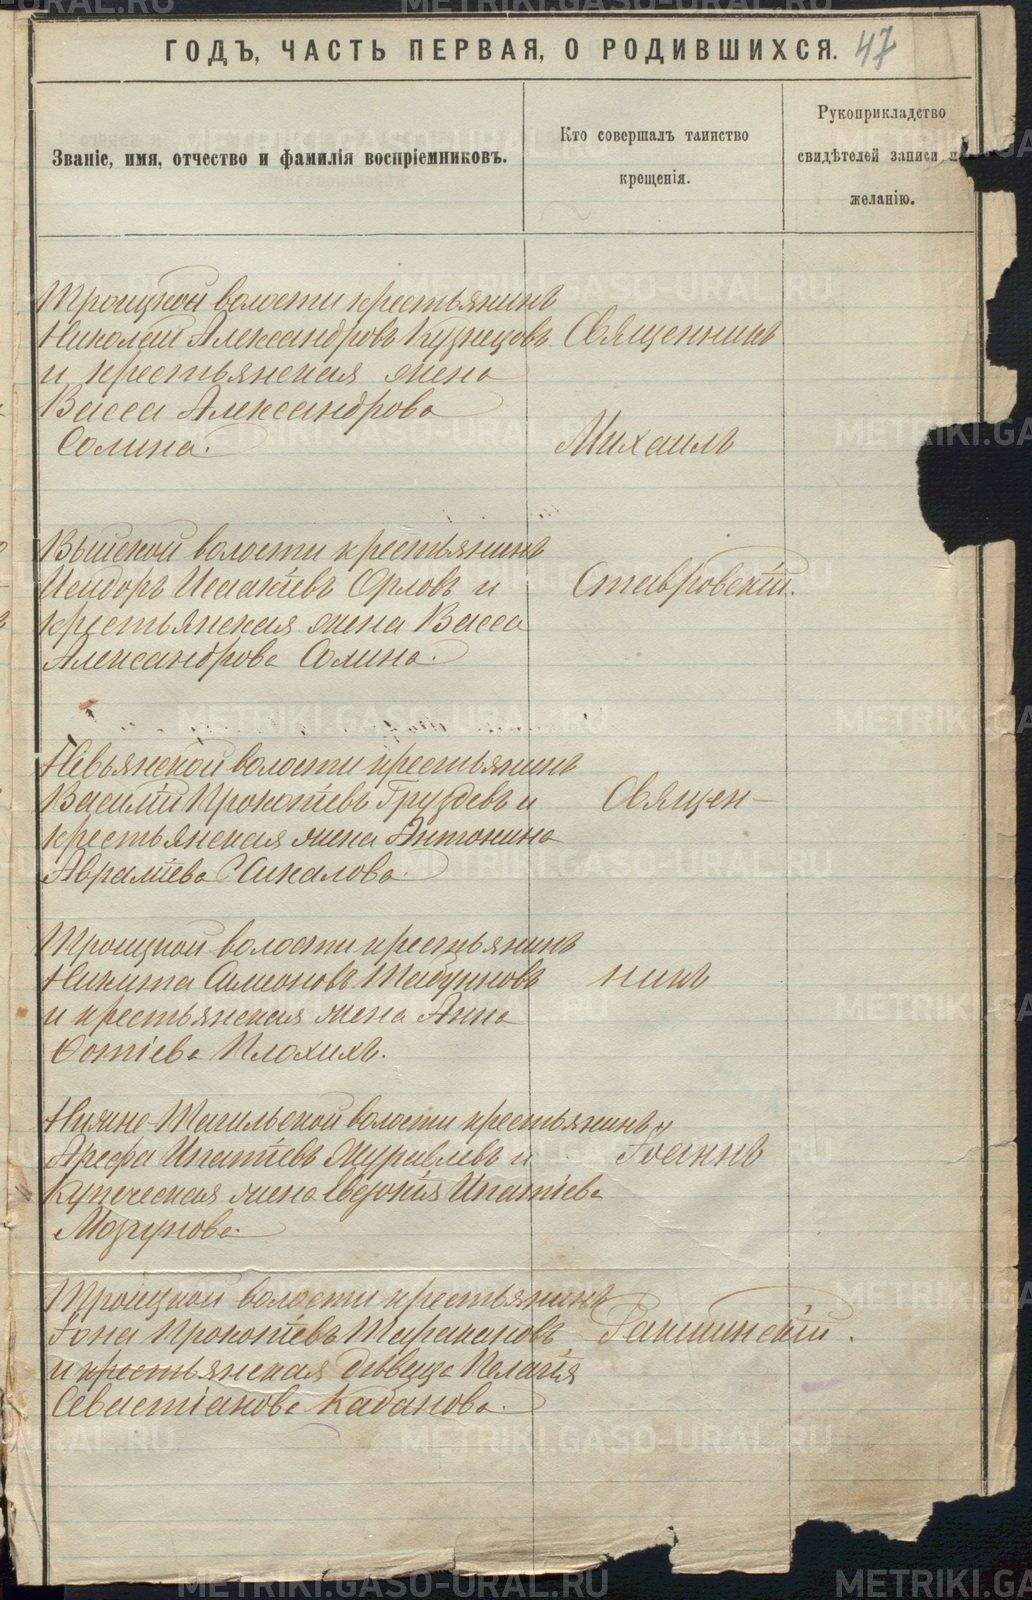 ГОДЪ, ЧАСТЬ ПЕРВАЯ, О РОДИВШИХСЯ. 47
Званіе, имя, отчество и фамилія воспріемниковъ.
Кто совершалъ таинство
крещенія.
Рукоприкладство
свидѣтелей записи по
желанію.
Троицкой волости крестьянинъ
Николай Александровъ Кузнецовъ
и крестьянская жена
Васса Александрова
Солина.
Священникъ
Михаилъ
Ставровскій.
Выйской волости крестьянинъ
Исидоръ Исаакіевъ Орловъ и
крестьянская жена Васса
Александрова Солина.
Невьянской волости крестьянинъ
Василій Прокопіевъ Груздевъ и
крестьянская жена Антонина
Авраміева Чикалова.
Священ-
никъ
Іоаннъ
Троицкой волости крестьянинъ
Никита Самсоновъ
и крестьянская жена Анна
Фотіева Плохихъ.
Нижне-Тагильской волости крестьянинъ
Арефа Ипатіевъ Журавлевъ и
Купеческая жена Евдокія Ипатіева
Мозгунова.
Троицкой волости крестьянинъ
Іона Прокопіевъ Таракановъ
и крестьянская дѣвица Пелагія
Севастіанова Кабанова.
METRIKI.GASO-URAL.RU